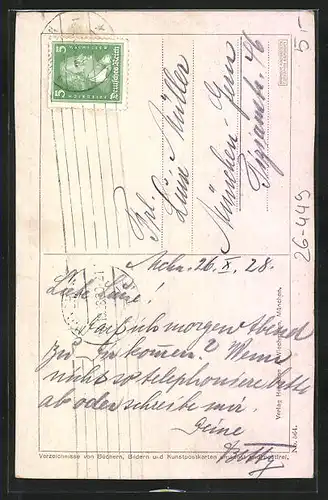 5.-
5
Deutsches Reich
5
Frl.
Luise Müller
München-Gern
26-449
Mchn. 26. X. 28.
Liebe Luise!
Darf ich morgen Abend
zu Dir kommen? Wenn
nicht so telephoniere bitte
ab oder schreibe mir.
Deine
Verlag München.
No. 564.
Verzeichnisse von Büchern, Bildern und Kunstpostkarten